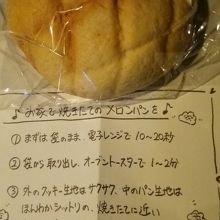 ♪お家で焼きたてのメロンパンを♪
① まずは袋のまま、電子レンジで10〜20秒
② 袋から取り出し、オーブントースターで1〜2分
③ 外のクッキー生地はサクサク、中のパン生地は
ほんわかシットリの、焼きたてに近い